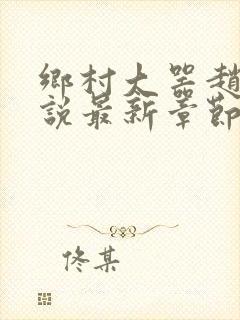 鄉村大器趙
說最新章節
佟某